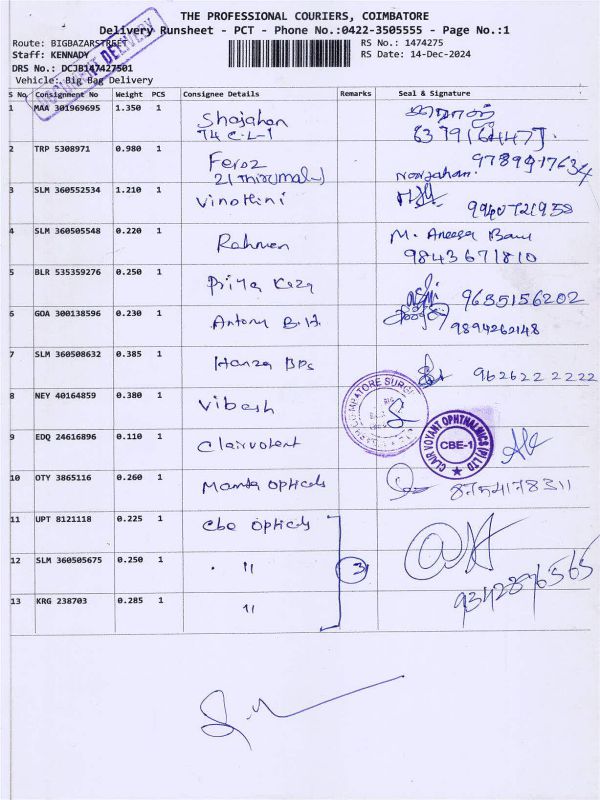 THE PROFESSIONAL COURIERS, COIMBATORE
Delivery Runsheet - PCT - Phone No.:0422-3505555 - Page No.:1
Route: BIGBAZARSTREET RS No.: 1474275
Staff: KENNADY RS Date: 14-Dec-2024
DRS No.: DCJB147427501
Vehicle: Big Bag Delivery
DELIVERY
S No Consignment No Weight PCS Consignee Details Remarks Seal & Signature
1 MAA 301969695 1.350 1 Shajahan
74 C-L-1
2 TRP 5308971 0.980 1 Feroz 9789917634
21 Thirumal Noorjahan
3 SLM 360552534 1.210 1 Vinothini 9940721958
4 SLM 360505548 0.220 1 Rahman M. Aneesa Banu
9843671810
5 BLR 535359276 0.250 1 Priya 9685156202
6 GOA 300138596 0.230 1 Antony B.H. 9894262148
7 SLM 360508632 0.385 1 Hamza BPs 9626222222
8 NEY 40164859 0.380 1 Vibesh
COIMBATORE SURGI
9 EDQ 24616896 0.110 1 Clairvoient
CLAIR VOYANT OPHTHALMICS (P) LTD
CBE-1
10 OTY 3865116 0.260 1 Mamta opticals 8754178311
11 UPT 8121118 0.225 1 Cbe opticals
12 SLM 360505675 0.250 1 " 3
13 KRG 238703 0.285 1 " 9342896565